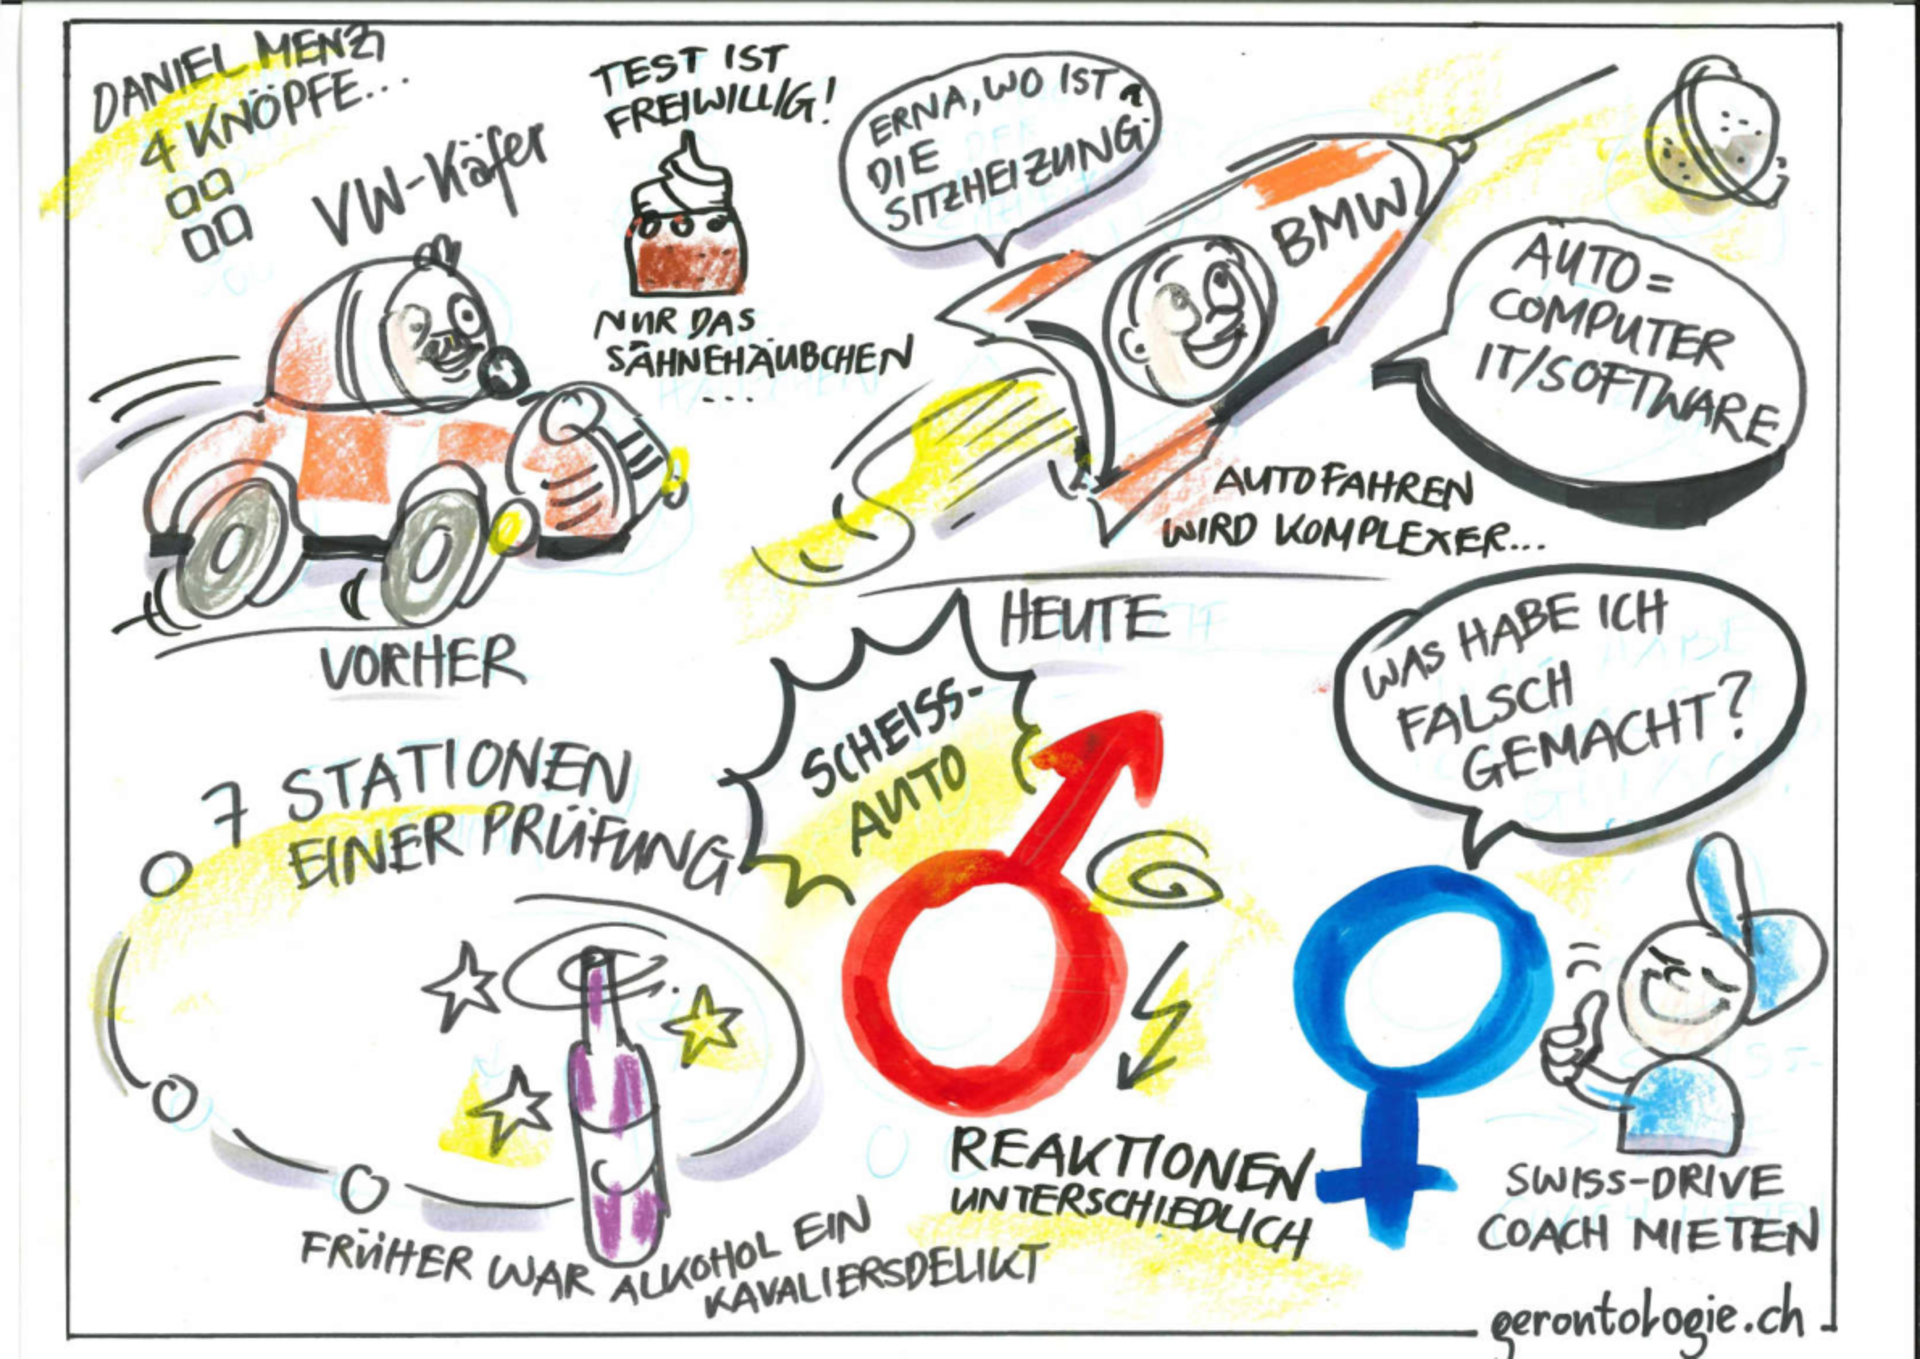 DANIEL MENZI
4 KNÖPFE...
VW-Käfer
TEST IST
FREIWILLIG!
NUR DAS
SAHNEHÄUBCHEN
...
VORHER
ERNA, WO IST
DIE
SITZHEIZUNG?
BMW
AUTO =
COMPUTER
IT/SOFTWARE
AUTOFAHREN
WIRD KOMPLEXER...
HEUTE
7 STATIONEN
EINER PRÜFUNG
FRÜHER WAR ALKOHOL EIN
KAVALIERSDELIKT
SCHEISS-
AUTO
WAS HABE ICH
FALSCH
GEMACHT?
REAKTIONEN
UNTERSCHIEDLICH
SWISS-DRIVE
COACH MIETEN
gerontologie.ch